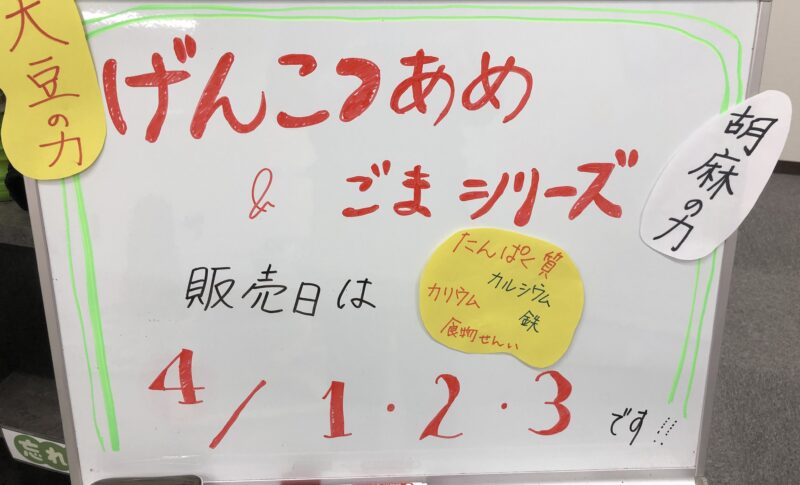 大豆の力
げんこつあめ
& ごまシリーズ
胡麻の力
販売日は
たんぱく質
カルシウム
カリウム
鉄
食物せんい
4/1・2・3
です!!!
忘れ